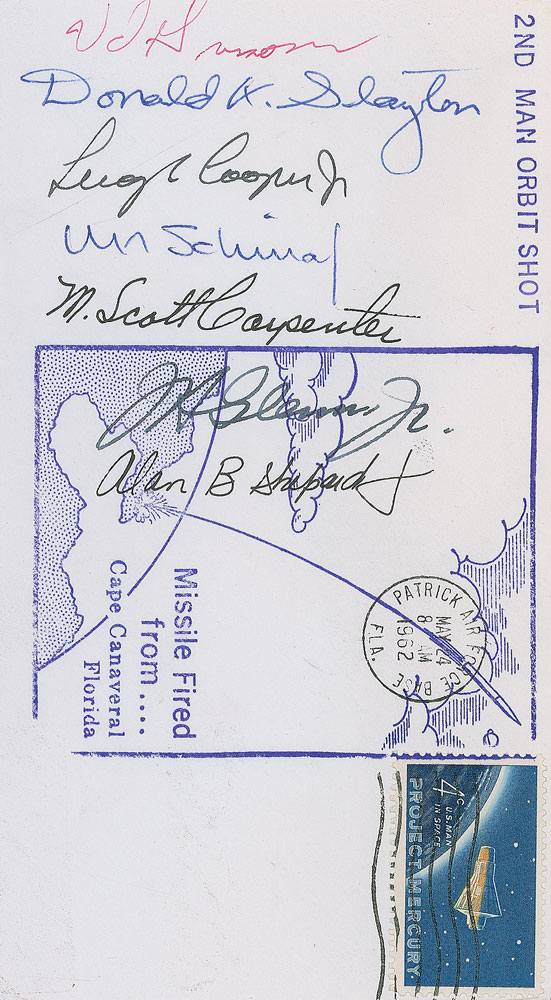 V I Grissom
Donald K. Slayton
Leroy G Cooper Jr
Wm Schirra
M. Scott Carpenter
JH Glenn Jr.
Alan B Shepard Jr
2ND MAN ORBIT SHOT
Missile Fired
from....
Cape Canaveral
Florida
PATRICK AIR FORCE BASE
MAY 24
8 AM
1962
FLA.
4¢
U.S. MAN
IN SPACE
PROJECT MERCURY